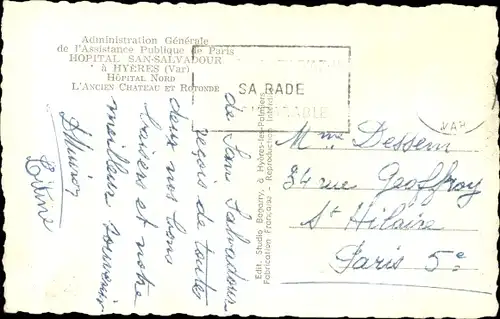 Administration Générale
de l'Assistance Publique de Paris
HOPITAL SAN-SALVADOUR
à HYÈRES (Var)
HÔPITAL NORD
L'ANCIEN CHATEAU ET ROTONDE
SA RADE
VAR
de San Salvadour
reçois de toutes
deux nos bons
baisers et notre
meilleur souvenir
Edit. Studio Bagarry, à Hyères-les-Palmiers
Fabrication Française - Reproduction Interdite
Mme Dessem
34 rue Geoffroy
St Hilaire
Paris 5e